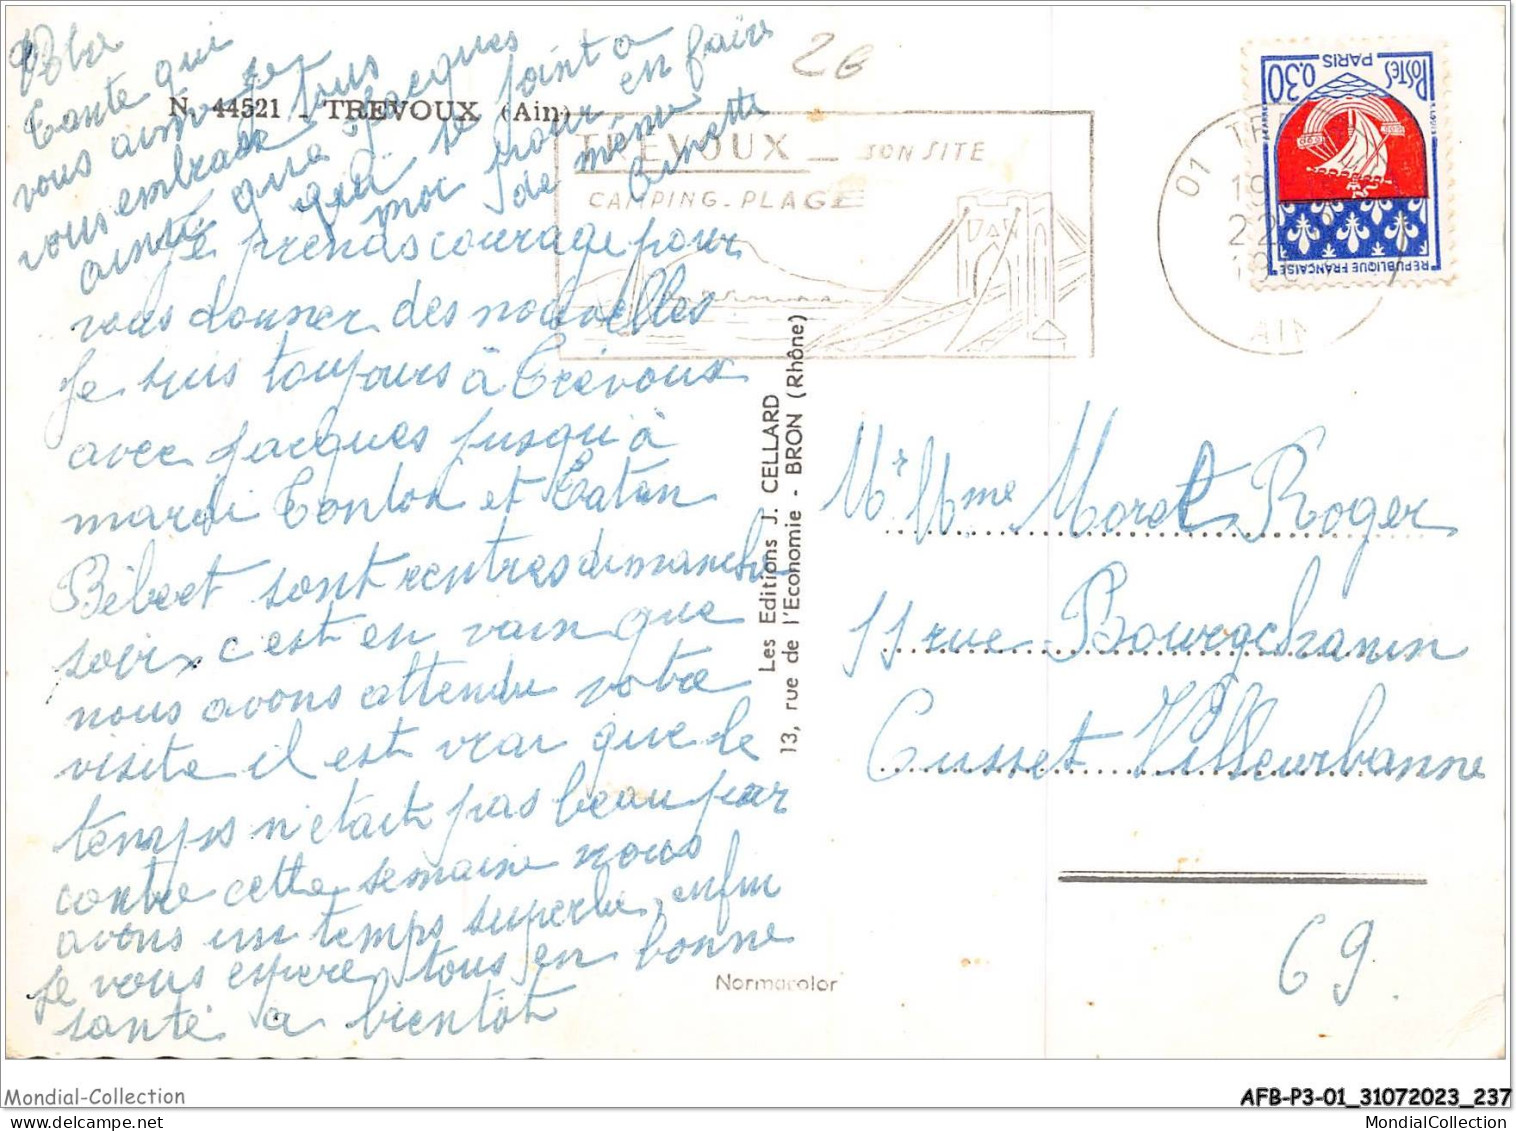 N. 44521 - TREVOUX (Ain)
Je prends courage pour
vous donner des nouvelles
Je suis toujours à Trévoux
avec Jacques jusqu'à
mardi Tonton et Tatan
Bébert sont rentres dimanche
soir, c'est en vain que
nous avons attendu votre
visite il est vrai que le
temps n'était pas beau par
contre cette semaine nous
avons un temps superbe, enfin
je vous espere tous en bonne
santé a bientôt
Votre
tante qui
vous aime et
vous embrasse tous
ainsi que Jacques
qui se joint a
moi pour en faire
de même
26
TREVOUX - SON SITE
CAMPING-PLAGE
01 TRE
22
AIN
0,30 POSTES
PARIS
REPUBLIQUE FRANÇAISE
Les Editions J. CELLARD
13, rue de l'Economie - BRON (Rhône)
Mr Mme Moret Roger
11 rue Bourgchanin
Cusset Villeurbanne
69.
Normacolor
Mondial-Collection
AFB-P3-01_31072023_237
MondialCollection.com